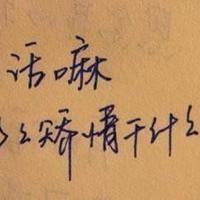 话嘛
么矫情干什么